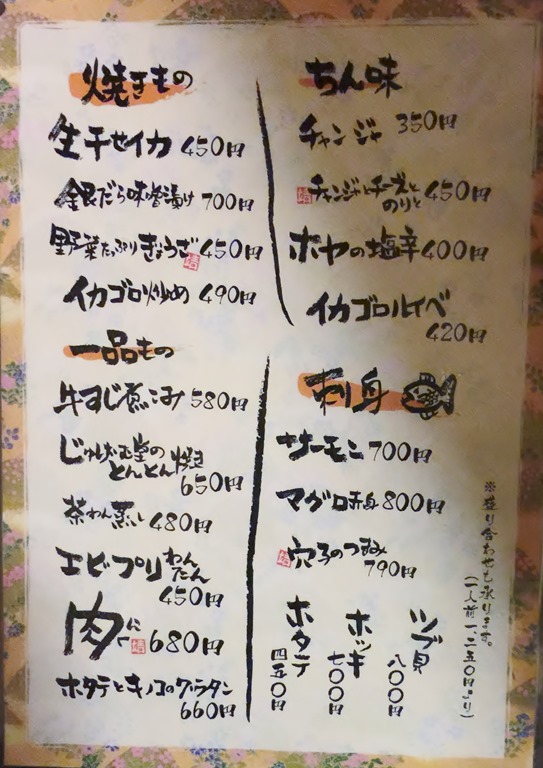 焼きもの
生干せイカ 450円
銀だら味噌漬け 700円
野菜たっぷりぎょうざ 450円
イカゴロ炒め 490円
一品もの
牛すじ煮こみ 580円
とんとん焼き
650円
茶わん蒸し 480円
エビプリわんたん
450円
肉 680円
ホタテとキノコのグラタン
660円
ちん味
チャンジャ 350円
チャンジャとチーズと
のりと 450円
ホヤの塩辛 400円
イカゴロルイベ
420円
刺身
サーモン 700円
マグロ赤身 800円
穴子のつまみ
790円
ツブ貝 八〇〇円
ホッキ 七〇〇円
ホタテ 四五〇円
※盛り合わせも承ります。
(一人前一、二五〇円より)